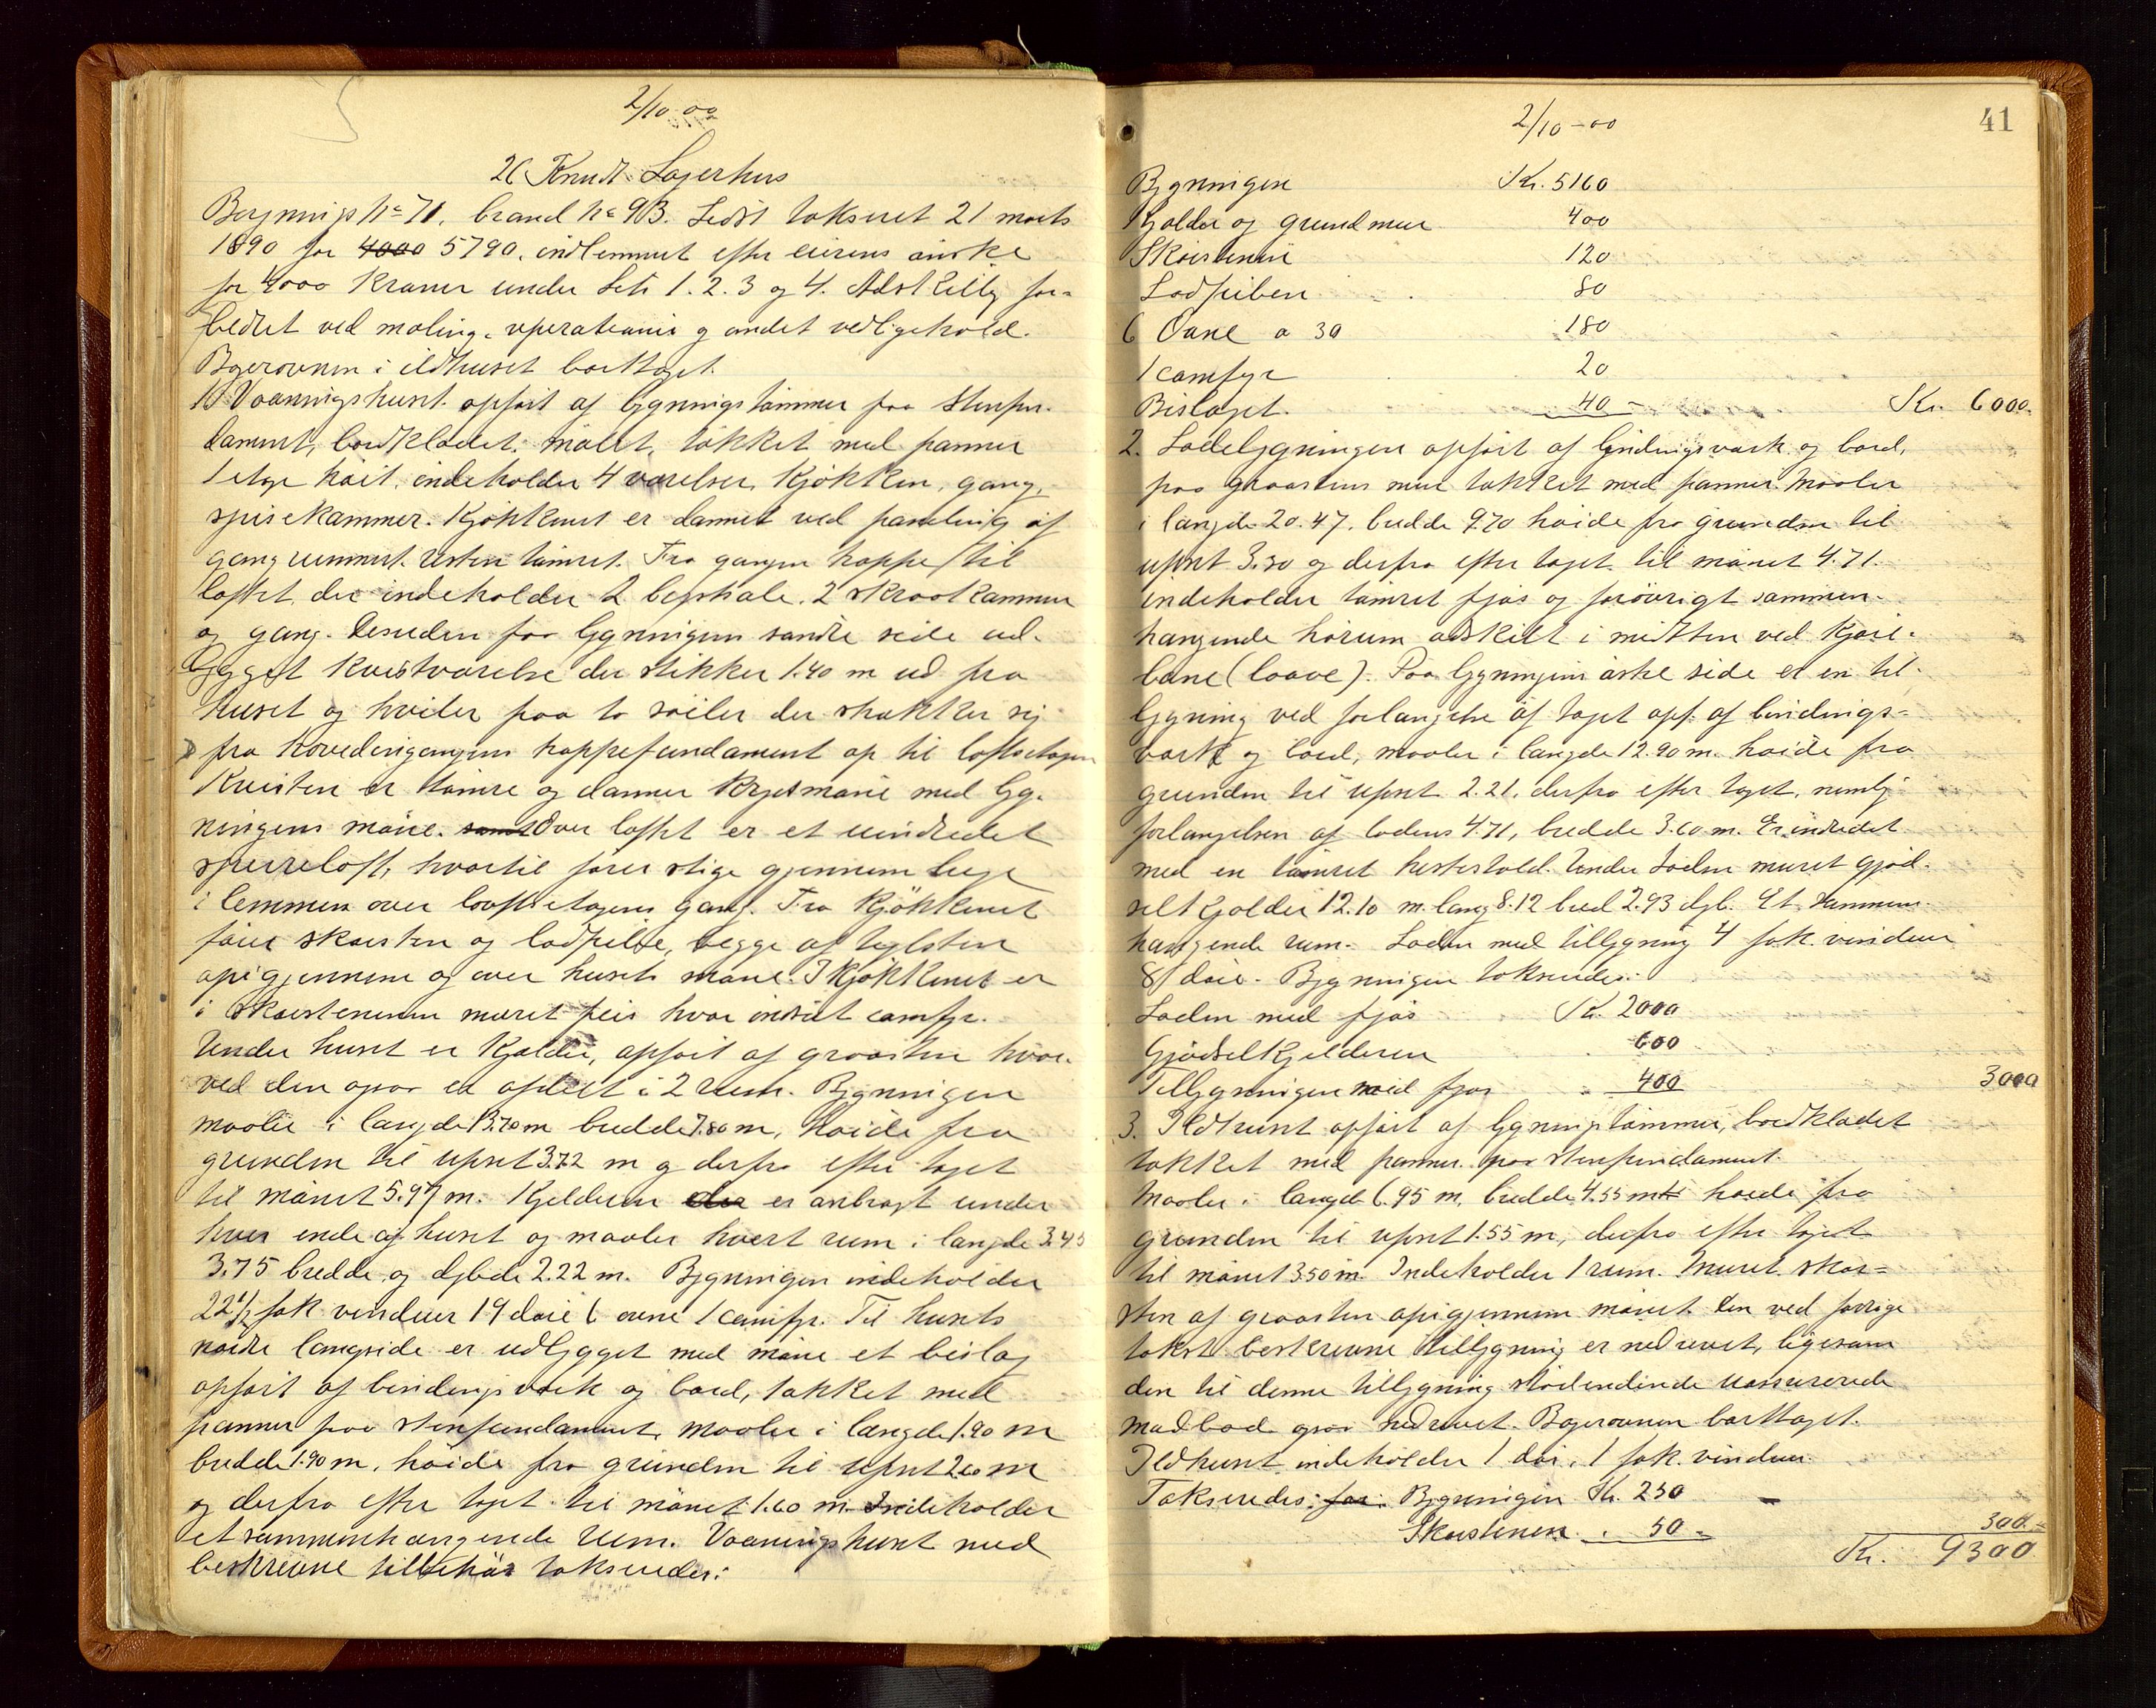 2/10-00
26 Knudt Lagerhus
Bygnings No 71, brand No 93. Sidst takseret 21 marts
1890 for 4000 5790, indlemmet efter eierens önske
for 4000 Kroner under Litr 1. 2. 3 og 4. Adskillig for-
bedret ved maling, reparationer og andet vedligehold.
Bagerovnen i ildhuset borttaget.
1) Vaaningshuset opfört af bygningstömmer paa stenfun-
dament, bordklædet, malet, tækket med panner
1 etage höit, indeholder 4 værelser, Kjökken, gang,
spisekammer. Kjökkenet er dannet ved paneling af
gangrummet. Resten tömret. Fra gangen trappe til
loftet der indeholder 2 bejshale. 2 skraakammer
og gang. Desuden paa bygningens söndre side ud-
bygget Kvistværelse der stikker 1.40 m ud fra
huset og hviler paa to söiler der strækker sig
fra hovedingangens trappefundament op til loftsetagen
Kvisten er tömre og danner Krydsmöne med byg-
ningens möne. samt Over loftet er et uindredet
sperreloft, hvortil förer stige gjennem luge
i lemmen over loftsetagens gang. Fra Kjökkenet
förer skorsten og lodpibe, begge af teglsten
op igjennem og over husets möne. I Kjökkenet er
i skorstenen muret peis hvor indsat camfyr.
Under huset er Kjælder, opfört af graasten hvor-
ved den ogsaa er opdelt i 2 rum. Bygningen
maaler i længde 13.70 m bredde 7.80 m, höide fra
grunden til ufset 3.72 m og derfra efter taget
til mönet 5.97 m. Kjelderen der er anbragt under
hver ende af huset og maaler hvert rum i længde 3.45
3.75 bredde og dybde 2.22 m. Bygningen indeholder
22 1/2 fak vinduer 19 döre 6 ovne 1 camfyr. Til husets
nordre langside er udbygget med möne et bislag
opfört af bindingsværk og bord, tækket med
panner paa stenfundament, maaler i længde 1.90 m
bredde 1.90 m, höide fra grunden til ufset 2.60 m
og derfra efter taget til mönet 1.60 m. Indeholder
et sammenhængende rum. Vaaningshuset med
beskrevne tilbehör takseredes:
2/10-00
41
Bygningen Kr. 5160
Kjælder og grundmur 400
Skorstenen 120
Lodpiben 80
6 Ovne a 30 180
1 camfyr 20
Bislaget 40 - Kr. 6000.
2. Ladebygningen opfört af bindingsværk og bord,
paa graastens mur tækket med panner. Maaler
i længde 20.47, bredde 9.70 höide fra grunden til
ufset 3.30 og derfra efter taget til mönet 4.71.
indeholder tömret fjös og forövrigt sammen-
hængende hörum adskilt i midten ved Kjöre-
bane (laave). Paa bygningens östre side er en til-
bygning ved forlængelse af taget opf. af bindings-
værk og bord, maaler i længde 12.90 m. höide fra
grunden til ufset 2.21, derfra efter taget, nemlig
forlængelsen af ladens 4.71, bredde 3.60 m. Er indredet
med en tömret hestestald. Under laden muret gjöd-
selkjælder 12.10 m. lang 8.12 bred 2.93 dyb. Et sammen-
hængende rum. Laden med tilbygning 4 fak. vinduer
8 döre. Bygningen takseredes:
Laden med fjös Kr. 2000
Gjödselkjelderen 600
Tilbygningen med fjös 400 3000
3. Ildhuset opfört af bygningstömmer, bordklædet
tækket med panner paa stenfundament.
Maaler i længde 6.95 m, bredde 4.55 m höide fra
grunden til ufset 1.55 m, derfra efter taget
til mönet 3.50 m. Indeholder 1 rum. Muret skor-
sten af graasten op igjennem mönet. Den ved forrige
takst beskrevne tilbygning er nedrevet, ligesom
den til denne tilbygning stödendende uassurerede
madbod ogsaa nedrevet. Bagerovnen borttaget.
Ildhuset indeholder 1 dör, 1 fak. vinduer
Takseredes: for: Bygningen Kr. 250
Skorstenen 50 - 300.-
Kr. 9300